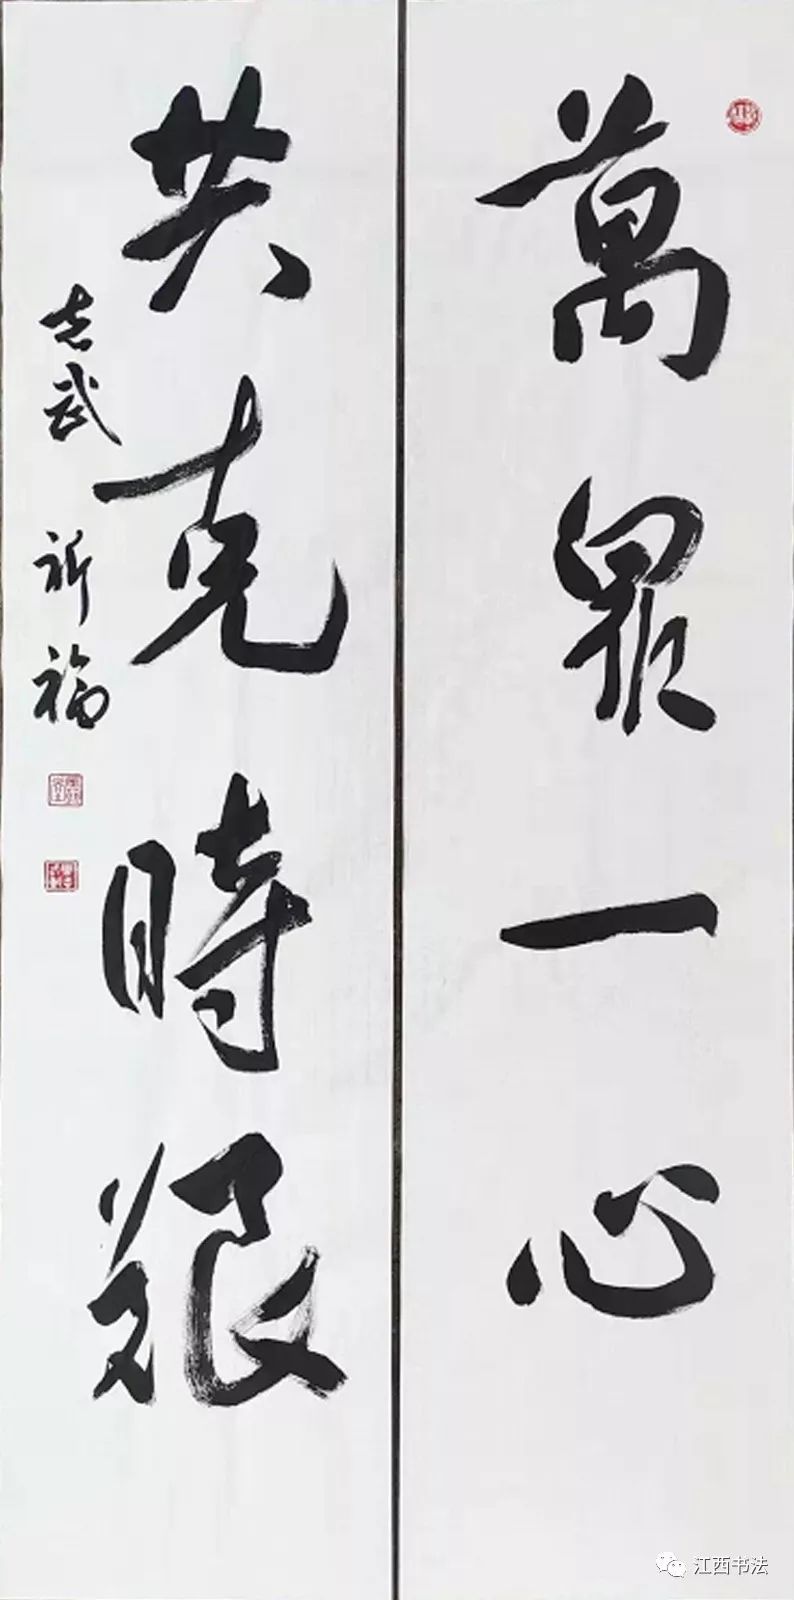 萬眾一心
共克時艱
志武 祈福
江西书法